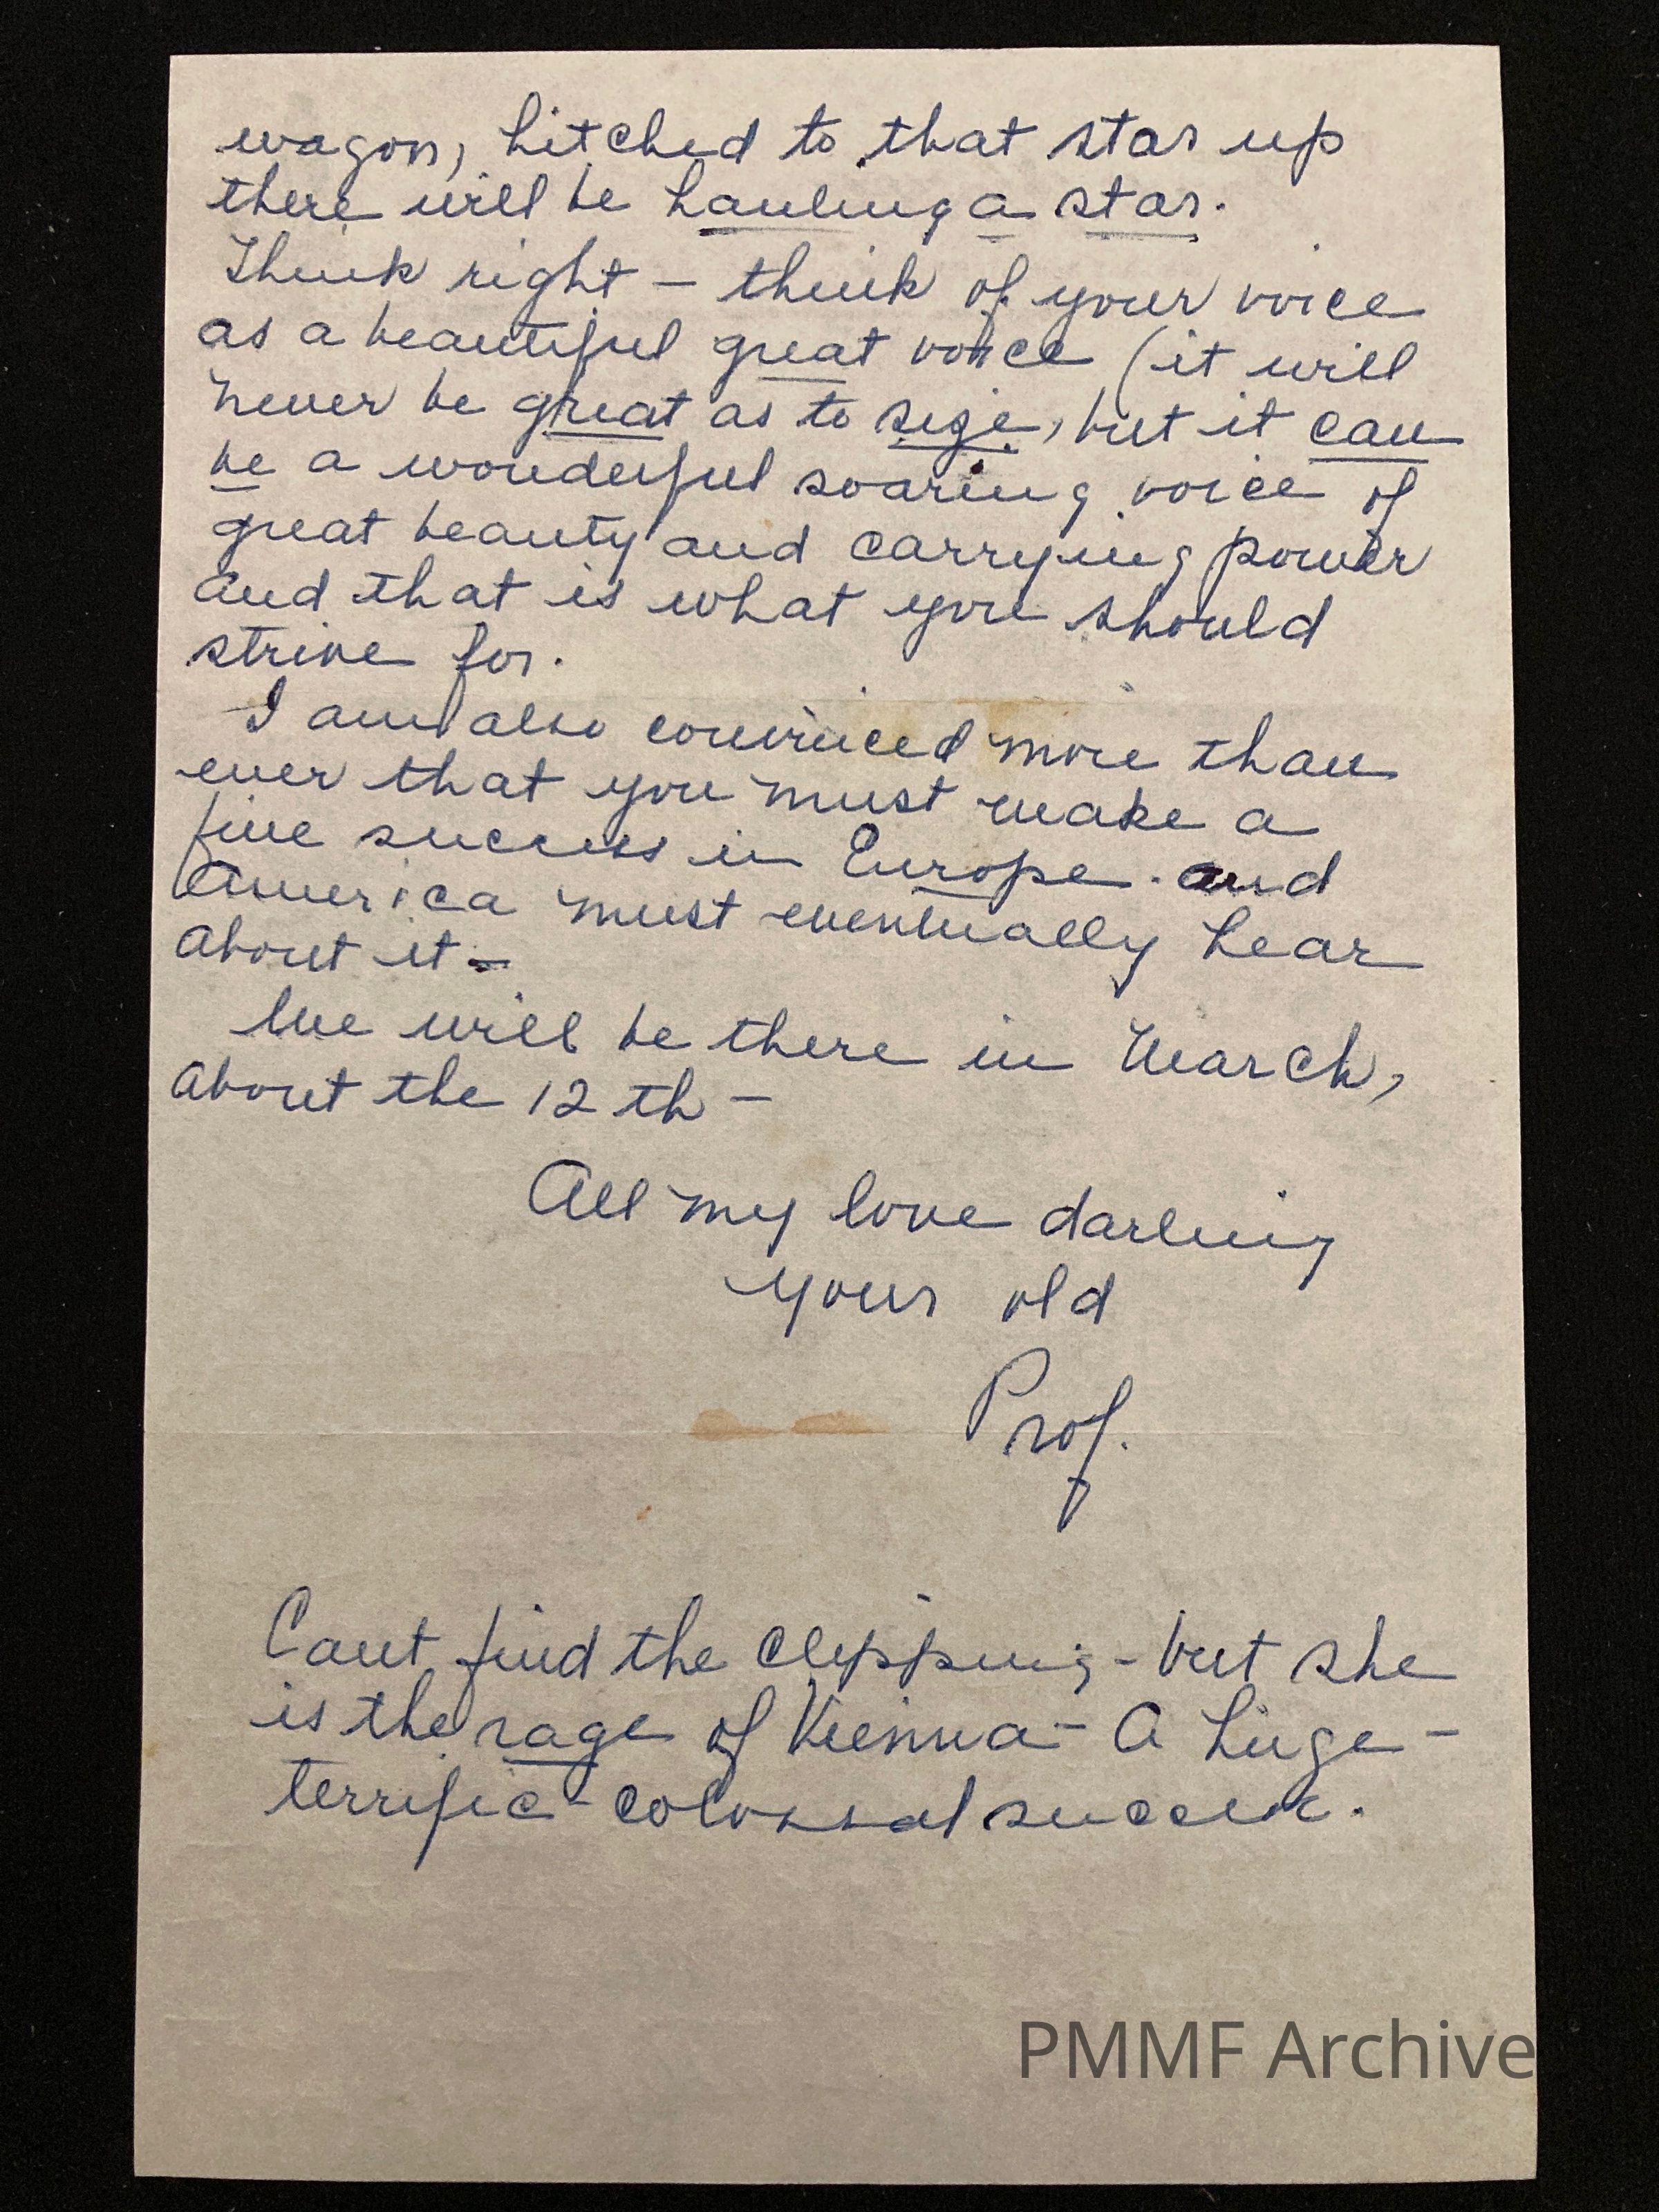 wagon, hitched to that star up
there will be hauling a star.
Think right – think of your voice
as a beautiful great voice (it will
never be great as to size, but it can
be a wonderful soaring voice of
great beauty and carrying power
and that is what you should
strive for.
I am also convinced more than
ever that you must make a
fine success in Europe. and
America must eventually hear
about it –
We will be there in March,
about the 12 th –
All my love darling
your old
Prof.
Cant find the clipping – but she
is the rage of Vienna – A huge –
terrific – colossal success.
PMMF Archive